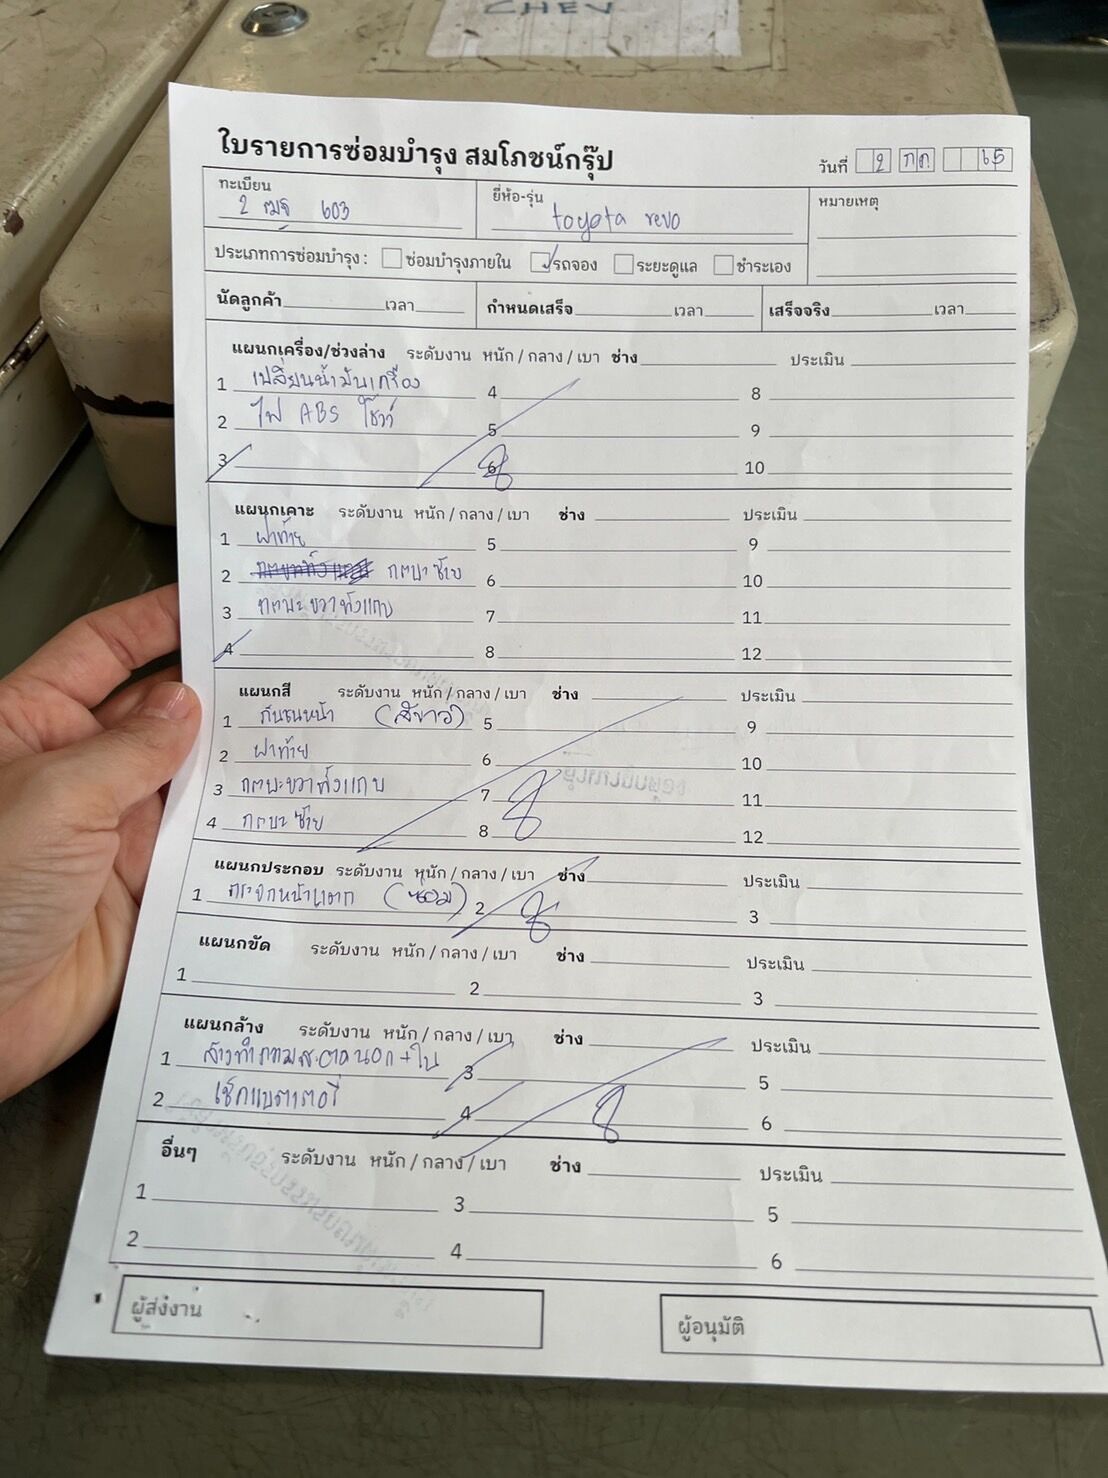 CHEV
ใบรายการซ่อมบำรุง สมโภชน์กรุ๊ป
วันที่ 2 กค 65
ทะเบียน ยี่ห้อ-รุ่น หมายเหตุ
2 ฒฐ 603 toyota revo
ประเภทการซ่อมบำรุง : ซ่อมบำรุงภายใน รถจอง ระยะดูแล ชำระเอง
นัดลูกค้า เวลา กำหนดเสร็จ เวลา เสร็จจริง เวลา
แผนกเครื่อง/ช่วงล่าง ระดับงาน หนัก / กลาง / เบา ช่าง ประเมิน
1 เปลี่ยนน้ำมันเครื่อง 4 8
2 ไฟ ABS โชว์ 5 9
3 6 10
แผนกเคาะ ระดับงาน หนัก / กลาง / เบา ช่าง ประเมิน
1 ฝาท้าย 5 9
2 กระบะซ้าย 6 10
3 กระบะขวาทั้งแถบ 7 11
4 8 12
แผนกสี ระดับงาน หนัก / กลาง / เบา ช่าง ประเมิน
1 กันชนหน้า (สีขาว) 5 9
2 ฝาท้าย 6 10
3 กระบะขวาทั้งแถบ 7 11
4 กระบะซ้าย 8 12
แผนกประกอบ ระดับงาน หนัก / กลาง / เบา ช่าง ประเมิน
1 กระจกหน้าแตก (ซ่อม) 2 3
แผนกขัด ระดับงาน หนัก / กลาง / เบา ช่าง ประเมิน
1 2 3
แผนกล้าง ระดับงาน หนัก / กลาง / เบา ช่าง ประเมิน
1 ล้างทำความสะอาดนอก+ใน 3 5
2 เช็คแบตเตอรี่ 4 6
อื่นๆ ระดับงาน หนัก / กลาง / เบา ช่าง ประเมิน
1 3 5
2 4 6
ผู้ส่งงาน ผู้อนุมัติ